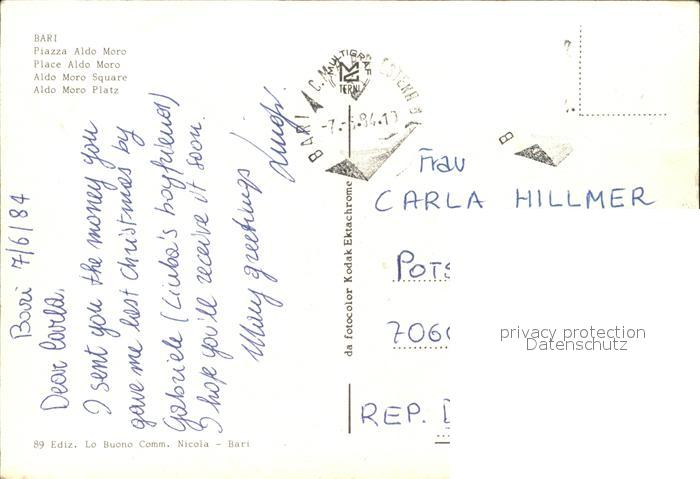 BARI
Piazza Aldo Moro
Place Aldo Moro
Aldo Moro Square
Aldo Moro Platz
Bari 7/6/84
Dear Carla,
I sent you the money you
gave me last Christmas by
Gabriele (Liuba's boyfriend)
I hope you'll receive it soon.
Many greetings
Luigi.
89 Ediz. Lo Buono Comm. Nicola - Bari
da fotocolor Kodak Ektachrome
MULTIGRAF
TERNI
BARI C.M.
-7.-6.84.19
B
Frau
CARLA HILLMER
POTS
706
REP. D
privacy protection
Datenschutz